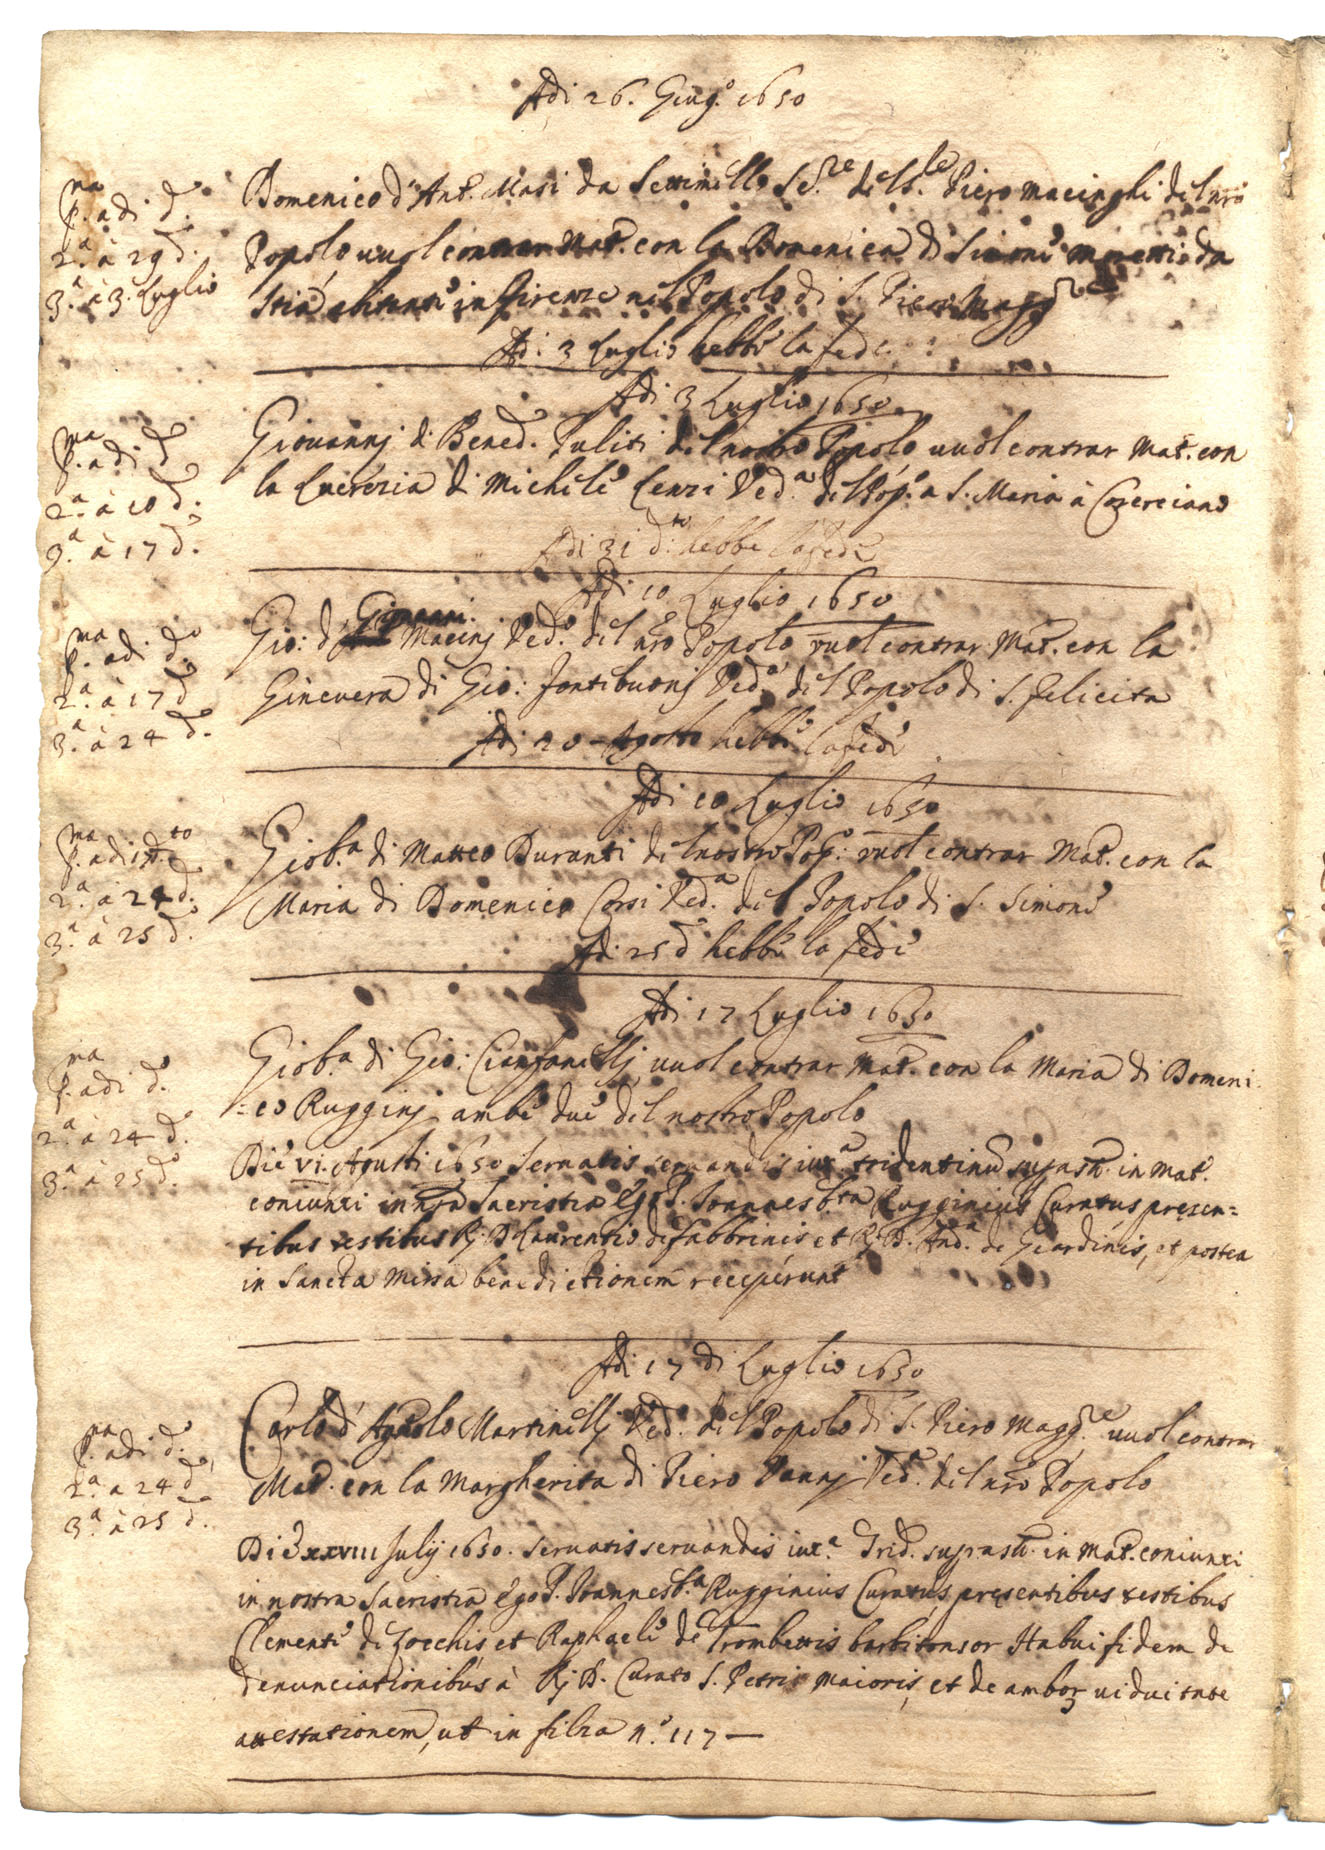 Adi 26. Giug.o 1650
p.ma adi d.o
2.a à 29 d.o
3.a à 3. Luglio
Domenico d'Ant.o Masi da Settimello Se.re del S.re Piero Macinghi del nro
Popolo vuol contrar Mat.o con la Domenica di Simone da
Stia abitante in Firenze nel Popolo di S. Piero Magg.re
Adi 3 Luglio hebbe la fede
Adi 3 Luglio 1650
p.ma adi d.o
2.a à 10 d.o
3.a à 17 d.o
Giovannj di Bened.o Juliti del nostro Popolo vuol contrar Mat.o con
la Lucrezia di Michele Lenzi Ved.a del Pop.o a S. Maria à
Adi 31 d.to hebbe la fede
Adi 10 Luglio 1650
p.ma adi d.o
2.a à 17 d.o
3.a à 24 d.o
Gio: di Giovanni Macinj Ved.o del nro Popolo vuol contrar Mat.o con la
Ginevera di Gio: Fontibuonj Ved.a del Popolo di S. Felicita
Adi 20 Agosto hebbe la fede
Adi 10 Luglio 1650
p.ma adi 17 d.to
2.a à 24 d.o
3.a à 25 d.o
Giob.a di Matteo Duranti del nostro Pop.o vuol contrar Mat.o con la
Maria di Domenico Corsi Ved.a del Popolo di S. Simone
Adi 25 d.o hebbe la fede
Adi 17 Luglio 1650
p.ma adi d.o
2.a à 24 d.o
3.a à 25 d.o
Giob.a di Gio: Cianfanellj vuol contrar Mat.o con la Maria di Domeni-
=co Rugginj ambe due del nostro Popolo
Die VI. Agusti 1650 Servatis servandis iux.a tridentinu suprasti. in Mat.o
coniunxi in nra Sacristia Ego P. Joannes b.ta Rugginius Curatus presen=
tibus testibus Rj D Laurentio de Fabbrinis et Rj D. And.a de Giardinis, et postea
in Sancta Missa benedictionem receperunt
Adi 17 di Luglio 1650
p.ma adi d.o
2.a à 24 d.o
3.a à 25 d.o
Carlo d'Agnolo Martinellj Ved.o del Popolo di S. Piero Magg.re vuol contrar
Mat.o con la Margherita di Piero Vannj Ved.a del nro Popolo
Die XXVIII Julij 1650. servatis servandis iux.a Trid. suprasti. in Mat.o coniunxi
in nostra Sacristia Ego P. Joannes b.a Rugginius Curatus presentibus testibus
Clemente de Zocchis et Raphaele de Trombettis barbitonsor Habui fidem de
denunciationibus à Rj D. Curato S. Petris Maioris, et de ambor viduitate
attestationem, ut in filza n.o 117 —